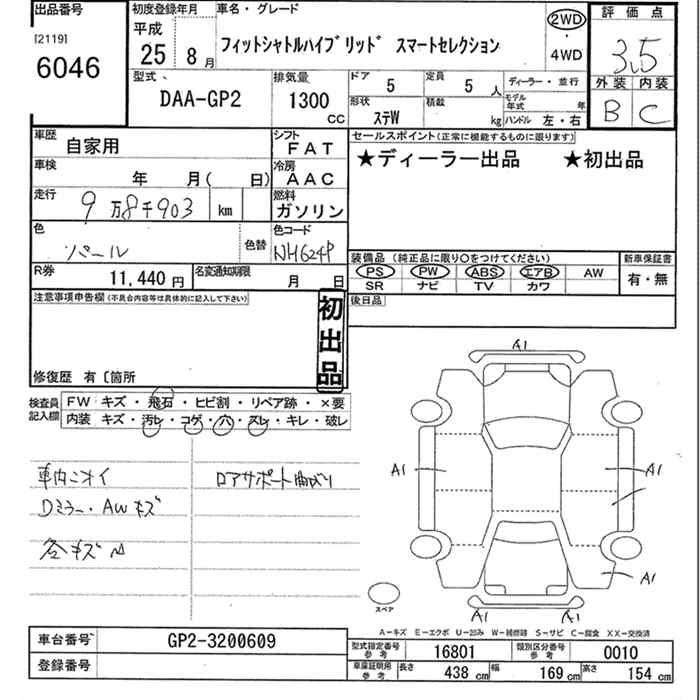 出品番号
[2119]
6046
初度登録年月
平成
25 8月
車名・グレード
フィットシャトルハイブリッド スマートセレクション
2WD
・
4WD
評価点
3.5
外装 内装
B C
型式
DAA-GP2
排気量
1300
CC
ドア 5
定員 5 人
形状 ステW
積載 kg
ディーラー・並行
モデル年式 年
ハンドル 左・右
車歴 自家用
シフト FAT
車検 年 月( 日)
冷房 AAC
走行 9万8千903 km
燃料 ガソリン
色 パール
色替
色コード NH624P
R券 11,440円
名変通知期限 月 日
セールスポイント(正常に機能するものに限ります)
★ディーラー出品 ★初出品
装備品 (純正品に限り○をつけてください)
PS PW ABS エアB AW
SR ナビ TV カワ
新車保証書
有・無
後日品
注意事項申告欄 (不具合内容等は具体的に記入して下さい)
初出品
修復歴 有〔箇所
検査員記入欄
FW キズ・飛石・ヒビ割・リペア跡・×要
内装 キズ・汚レ・コゲ・穴・スレ・キレ・破レ
車内ニオイ
Dミラー・AWキズ
各キズ
ロアサポート曲がり
A1
A1
A1
A1
A1
A1
スペア
A−キズ E−エクボ U−凹み W−補修跡 S−サビ C−腐食 XX−交換済
車台番号 GP2-3200609
登録番号
型式指定番号参考 16801
類別区分番号参考 0010
車庫証明用参考 長さ 438 cm 幅 169 cm 高さ 154 cm